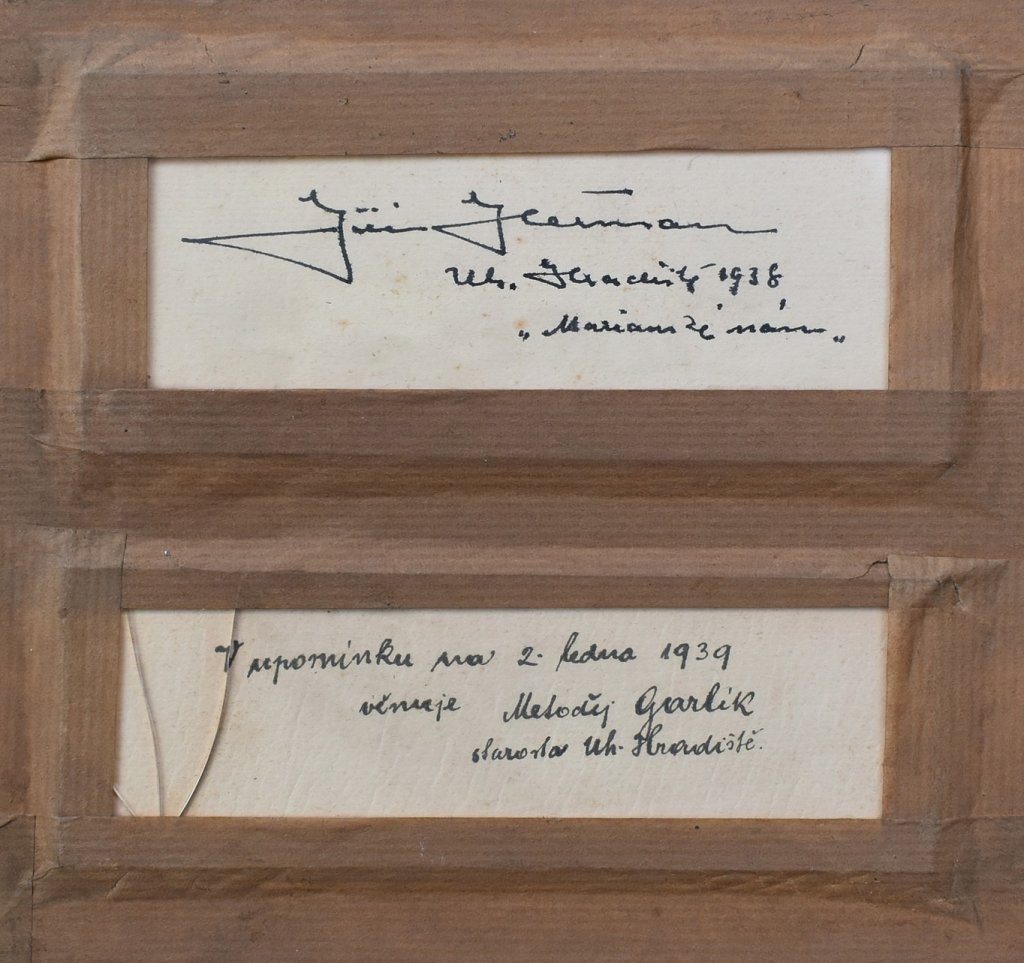 Jiří Heřman
Uh. Hradiště 1938
„Marianské nám„
V upomínku na 2. ledna 1939
věnuje Metoděj Garlík
starosta Uh. Hradiště.